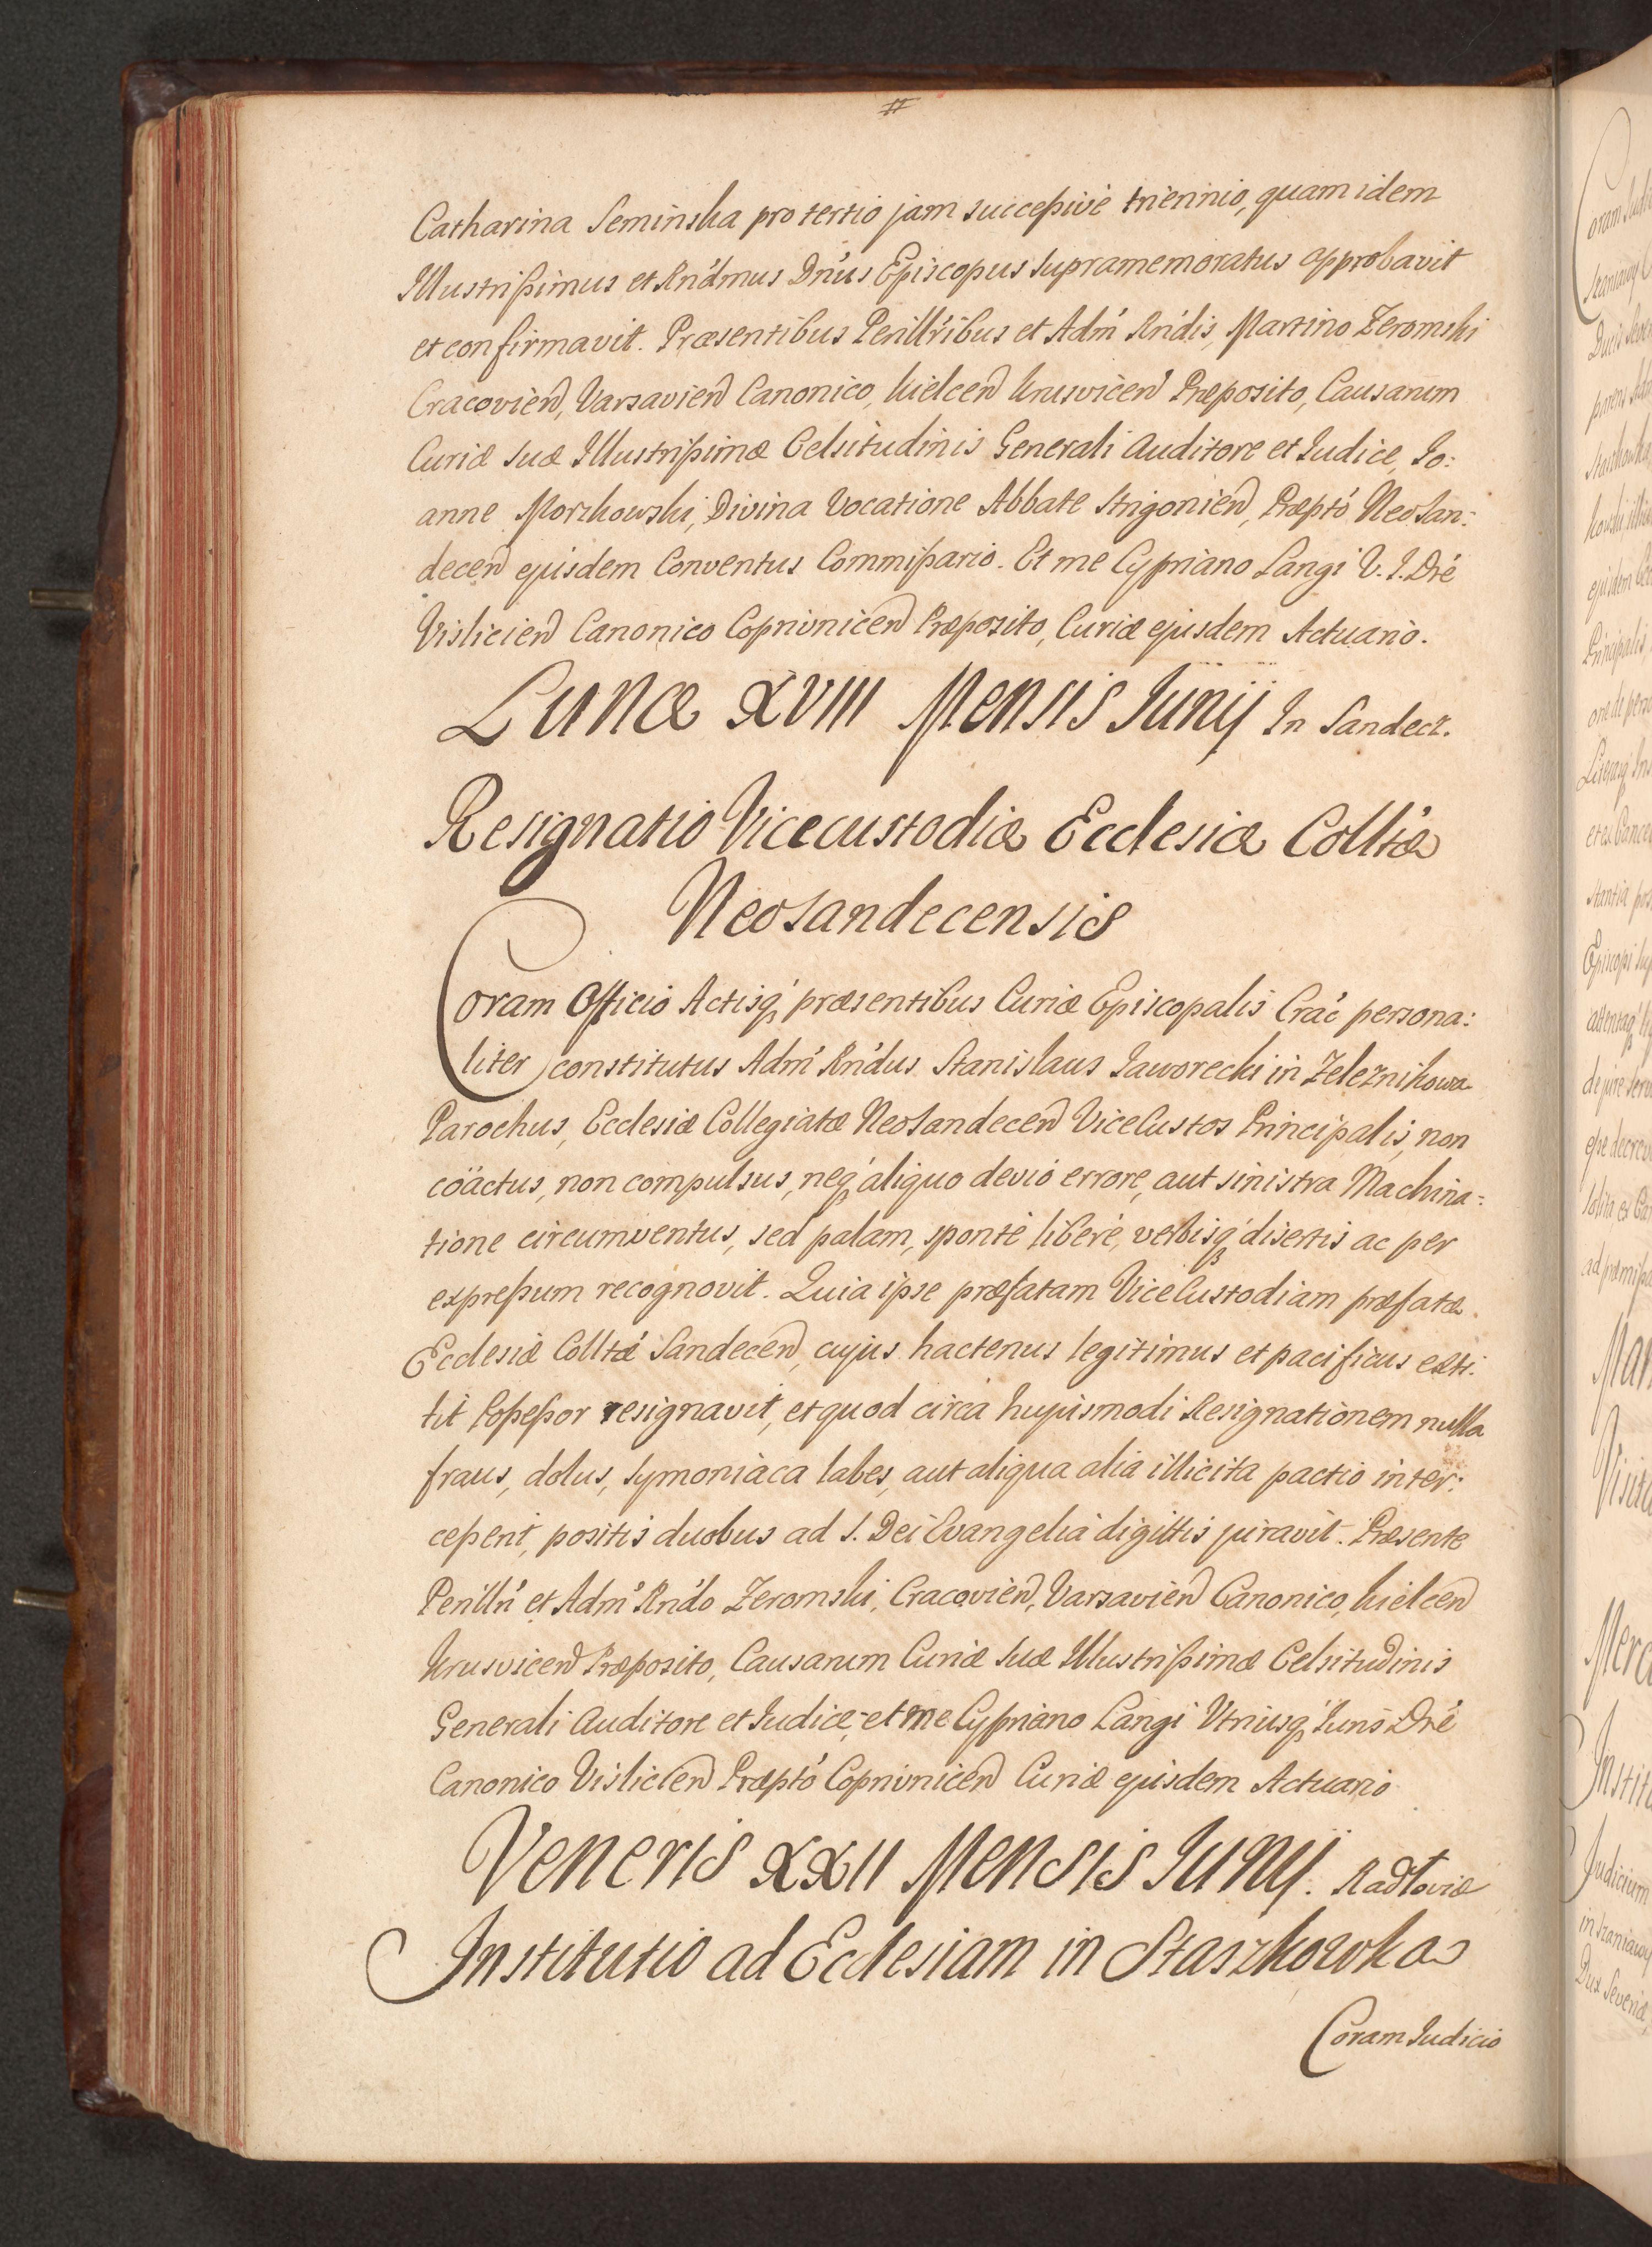 Catharina Seminska pro tertio jam succeßivè triennio, quam idem
Illustrißimus et Rńdmus Dńus Episcopus supramemoratus approbavit
et confirmavit. Præsentibus Perillr̃ibus et Adm̃ Rńdis, Martino Zeromski
Cracovien̄, Varsavien̄ Canonico, Kielcen̄ Krusvicen̄ Præposito, Causarum
Curiæ suæ Illustrißimæ Celsitudinis Generali Auditore et Iudice, Io:
anne Morzkowski, Divina Vocatione Abbate Strigonien̄, Præptó NeoSan:
decen̄ ejusdem Conventus Commißario. Et me Cypriano Langi V. I. Dré
Vislicien̄ Canonico Coprivnicen̄ Præposito, Curiæ ejusdem Actuario.
Lunæ XVIII Mensis Iunij In Sandecz.
Resignatio Vicecustodiæ Ecclesiæ Colltæ
Neosandecensis
Coram Officio Actisq́ præsentibus Curiæ Episcopalis Crać persona:
liter constitutus Adm̃ Rńdus Stanislaus Jaworecki in Zeleznikowa
Parochus, Ecclesiæ Collegiatæ Neosandecen̄ ViceCustos Principalis, non
cöactus, non compulsus, neq́ aliquo devio errore, aut sinistra Machina:
tione circumventus, sed palam, spontè liberè, verbisq́ disertis ac per
expreßum recognovit. Quia ipse præfatam ViceCustodiam præfatæ
Ecclesiæ Colltæ Sandecen̄, cujus hactenus legitimus et pacificus exti:
tit Poßeßor resignavit, et quod circa hujusmodi Resignationem nulla
fraus, dolus, symoniaca labes, aut aliqua alia illicita pactio inter:
ceßerit, positis duobus ad S. Dei Evangelia digittis juravit. Præsente
Perillr̃i et Adm̃ Rńdo Zeromski, Cracovien̄, Varsavien̄ Canonico, Kielcen̄
Krusvicen̄ Præposito, Causarum Curiæ suæ Illustrißimæ Celsitudinis
Generali Auditore et Iudice, et me Cypriano Langi Vtriusq́ Iuris Dré
Canonico Vislicien̄ Præptó Coprivnicen̄ Curiæ ejusdem Actuario
Veneris XXII Mensis Iunij. Radłoviæ
Institutio ad Ecclesiam in Staszkowka
Coram Iudicio